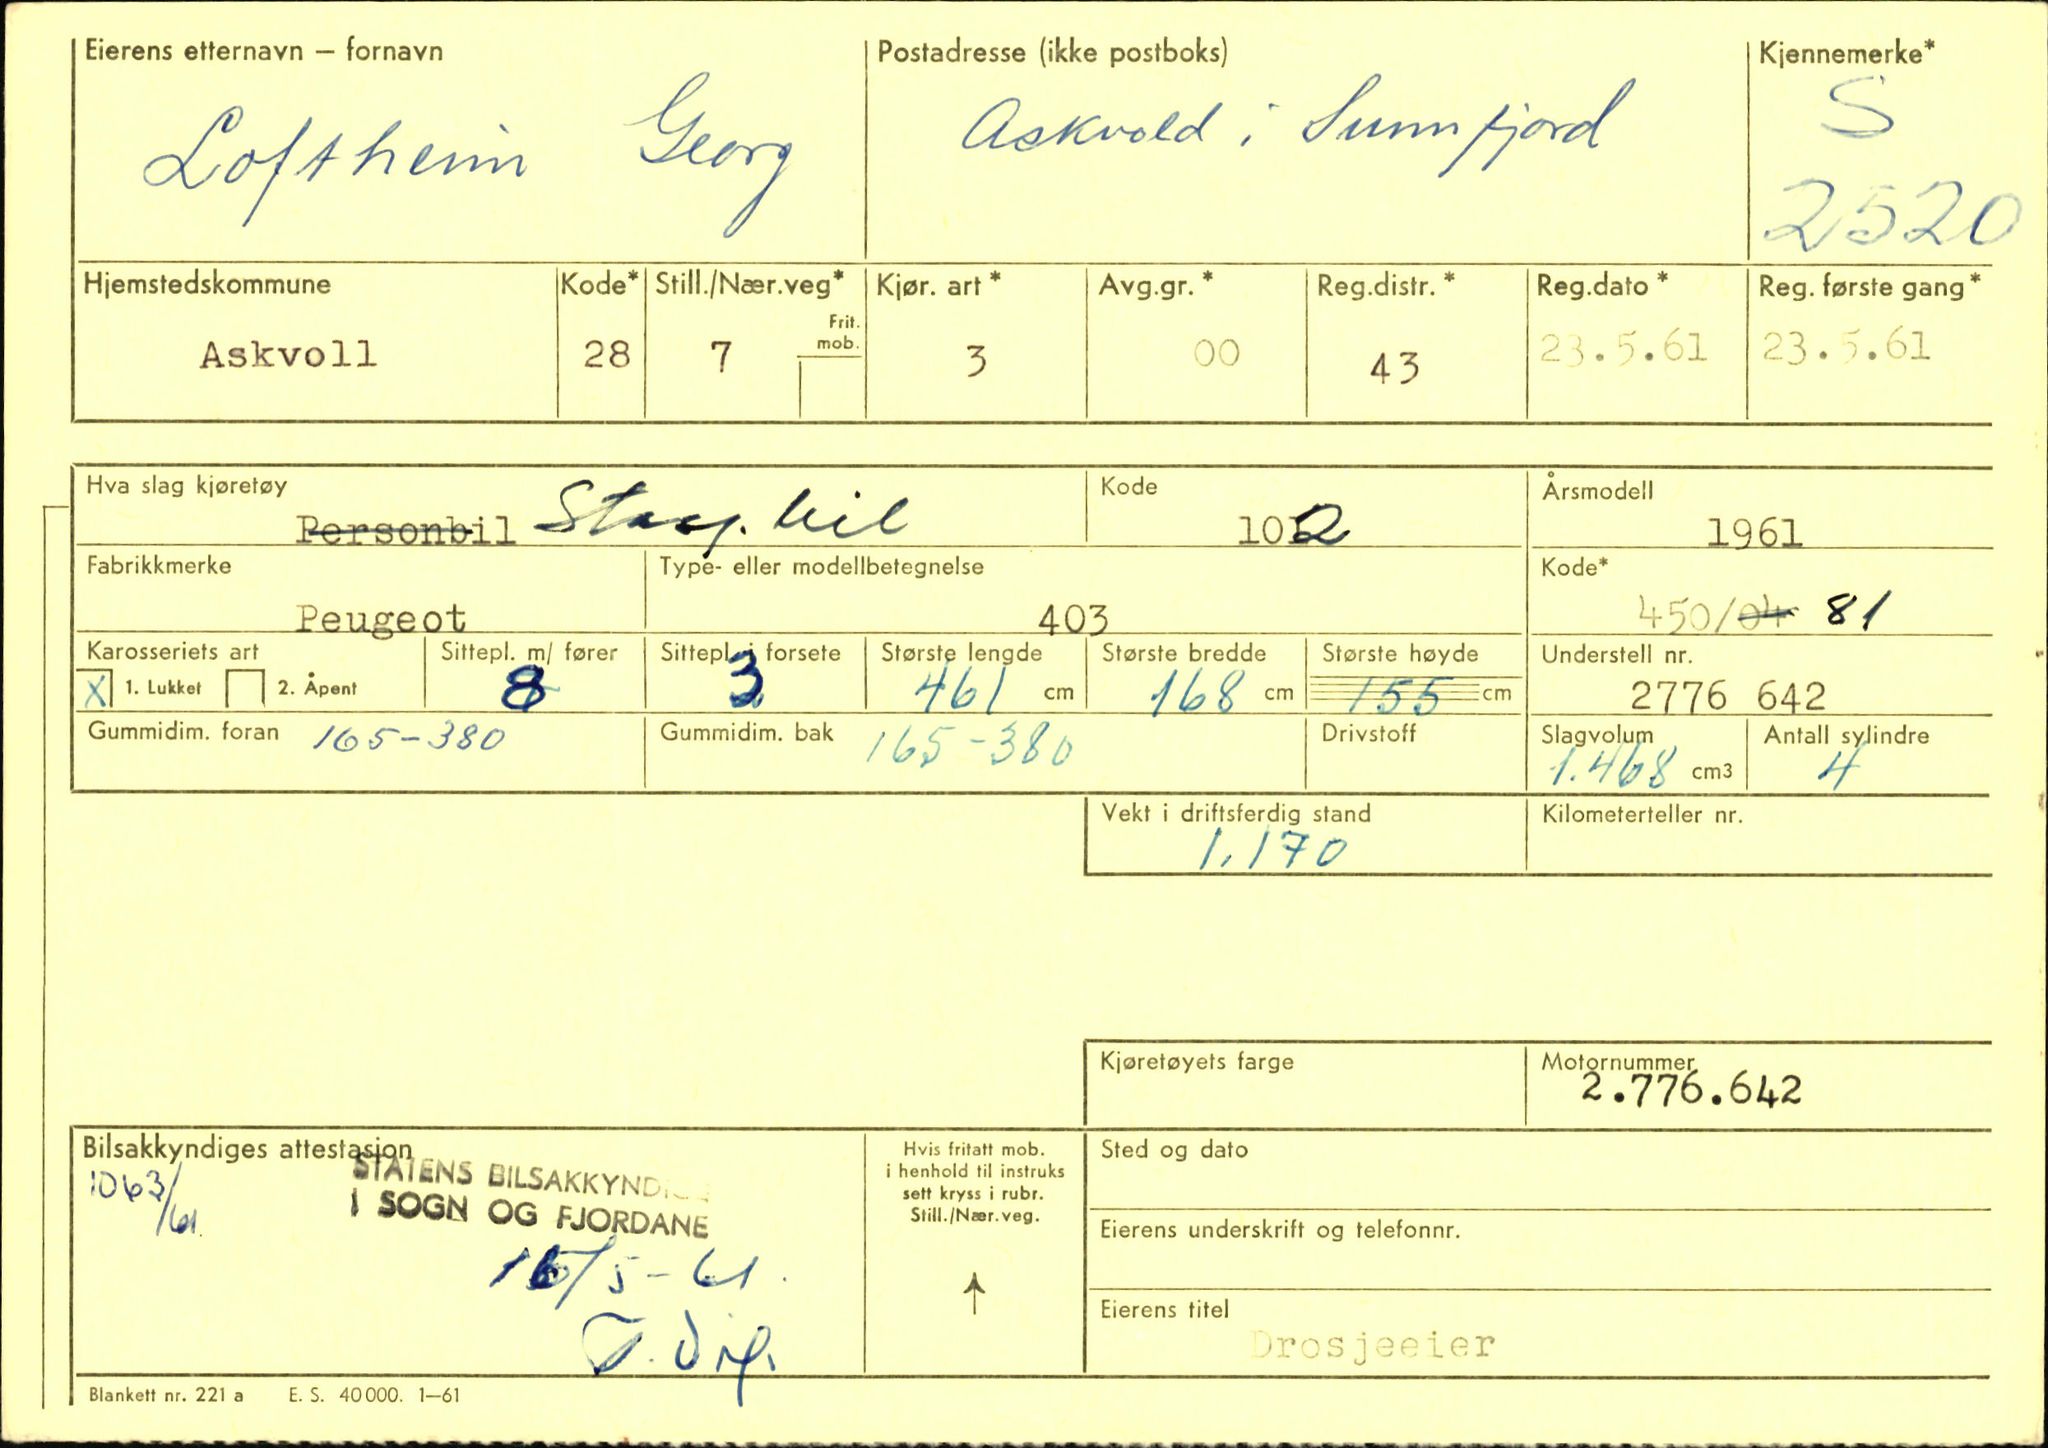 Eierens etternavn — fornavn Postadresse (ikke postboks) Kjennemerke*
Loftheim Georg Askvold i Sunnfjord S
2520
Hjemstedskommune Kode* Still./Nær.veg* Kjør. art * Avg.gr. * Reg.distr. * Reg.dato * Reg. første gang*
Frit. mob.
Askvoll 28 7 3 00 43 23.5.61 23.5.61
Hva slag kjøretøy Kode Årsmodell
Personbil Stasj. bil 102 1961
Fabrikkmerke Type- eller modellbetegnelse Kode*
Peugeot 403 450/04 81
Karosseriets art Sittepl. m/ fører Sittepl. i forsete Største lengde Største bredde Største høyde Understell nr.
X 1. Lukket 2. Åpent 8 3 461 cm 168 cm 155 cm 2776 642
Gummidim. foran 165-380 Gummidim. bak 165-380 Drivstoff Slagvolum Antall sylindre
1.468 cm3 4
Vekt i driftsferdig stand Kilometerteller nr.
1.170
Kjøretøyets farge Motornummer
2.776.642
Bilsakkyndiges attestasjon
1063/61.
STATENS BILSAKKYNDIGE
I SOGN OG FJORDANE
16/5-61.
Hvis fritatt mob.
i henhold til instruks
sett kryss i rubr.
Still./Nær.veg.
Sted og dato
Eierens underskrift og telefonnr.
Eierens titel
Drosjeeier
Blankett nr. 221 a E. S. 40 000. 1—61